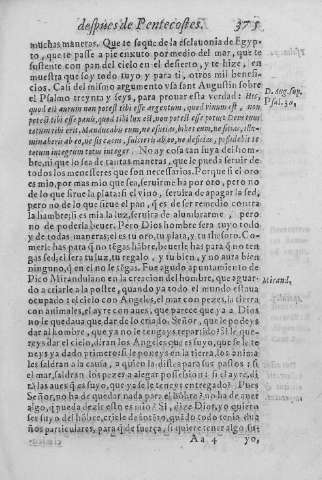 despues de Pentecostes. 375
muchas maneras. Que te saque de la esclauonia de Egyp-
to, que te passe a pie enxuto por medio del mar, que te
sustente con pan del cielo en el desierto, y te hize, en
muestra que soy todo tuyo y para ti, otros mil benefi-
cios. Casi del mismo argumento vsa sant Augustin sobre
el Psalmo treynta y seys, para prouar esta verdad:
D. Aug. sup.
Psal. 30,
quod est aurum non potest tibi esse argentum, quod vinum est, non
potest tibi esse panis, quod tibi lux est, non potest esse potus: Deus tuus
totum tibi erit. Manducabis eum, ne esurias, bibes eum, ne sitias,
minaberis ab eo, ne sis caecus, fulcieris ab eo, ne deficias, possidebit te
totum integrum totus integer. No ay cosa tan suya del hom-
bre, ni que lo sea de tantas maneras, que le pueda seruir de
todos los menesteres que son necessarios. Porque si el oro
es mio, por mas mio que sea, seruirme ha por oro, pero no
de lo que sirue la plata: si el vino, seruira de apagar la sed,
pero no de lo que sirue el pan, que es de ser remedio contra
la hambre; si es mia la luz, seruira de alumbrarme, pero
no de poderla beuer. Pero Dios hombre sera tuyo todo
y de todas maneras; el es tu oro, tu plata, y tu thesoro. Co-
merle has para que no tengas hambre, beuerle has para que no ten-
gas sed; el sera tu luz, tu regalo, y tu bien, y no aura bien
ninguno, que en el no le tengas. Fue agudo apuntamiento de
Pico Mirandulano en la creacion del hombre, que aguar-
Mirand.
do a criarle a la postre, quando ya todo el mundo estaua
ocupado: el cielo con Angeles, el mar con pezes, la tierra
con animales, el ayre con aues, que parece que ya a Dios
no le quedaua que dar de lo criado. Señor, que le podeys
dar al hombre, que ya no le tengays repartido? Si le que-
reys dar el cielo, diran los Angeles que es suyo, que se le te-
neys ya dado primero: si le poneys en la tierra, los animales
saldran a la causa, a quien la distes para sus pastos: si
el mar, saldran los pezes a alegar possession: si el ayre, di-
ra las aues que es suyo, que ya se le teneys entregado? Pues
Señor, no ha de quedar nada para el hombre? no ha de auer
algo, que pueda dezir esto es mio? Si, dize Dios, yo quiero
ser suyo del hombre,
particulares, para que de fuerça, si quiere tener algo su-
Aa 4 yo,